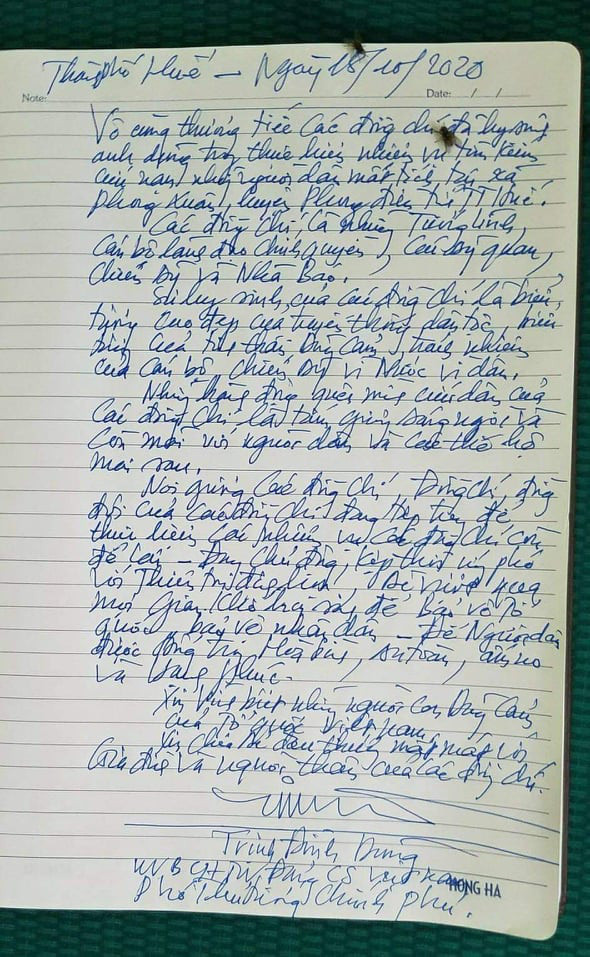 Thành phố Huế – Ngày 18/10/2020
Note: Date: / /
Vô cùng thương tiếc Các đồng chí đã hy sinh
anh dũng trong thực hiện nhiệm vụ tìm kiếm
cứu nạn những người dân mất tích tại xã
Phong Xuân, huyện Phong điền tỉnh TT Huế.
Các đồng chí, là những Tướng lĩnh,
Cán bộ lãnh đạo chính quyền, Cán bộ quan,
Chiến sỹ và Nhà Báo.
Sự hy sinh của các đồng chí là biểu
tượng cao đẹp của truyền thống dân tộc,
của tinh thần Dũng Cảm, trách nhiệm
của Cán bộ chiến sỹ vì Nước vì dân.
Những hành động quên mình cứu dân của
Các đồng chí là tấm gương sáng ngời và
Còn mãi với người dân và các thế hệ
mai sau.
Noi gương Các đồng chí, đồng chí, đồng
đội của các đồng chí đang tiếp tục để
thực hiện các nhiệm vụ các đồng chí còn
để lại – chủ động, kịp thời ứng phó
với Thiên tai
mọi gian khó để Bảo vệ Tổ
quốc, bảo vệ nhân dân – Để Người dân
được sống trong Hòa bình, An toàn, ấm no
và hạnh phúc.
Xin Vĩnh biệt những người con Dũng Cảm
của Tổ quốc Việt nam.
Xin chia sẻ đau thương mất mát với
Gia đình và người thân của các đồng chí.
Trịnh Đình Dũng
UVBCHTW Đảng CS Việt nam
HONG HA
Phó Thủ tướng Chính phủ.